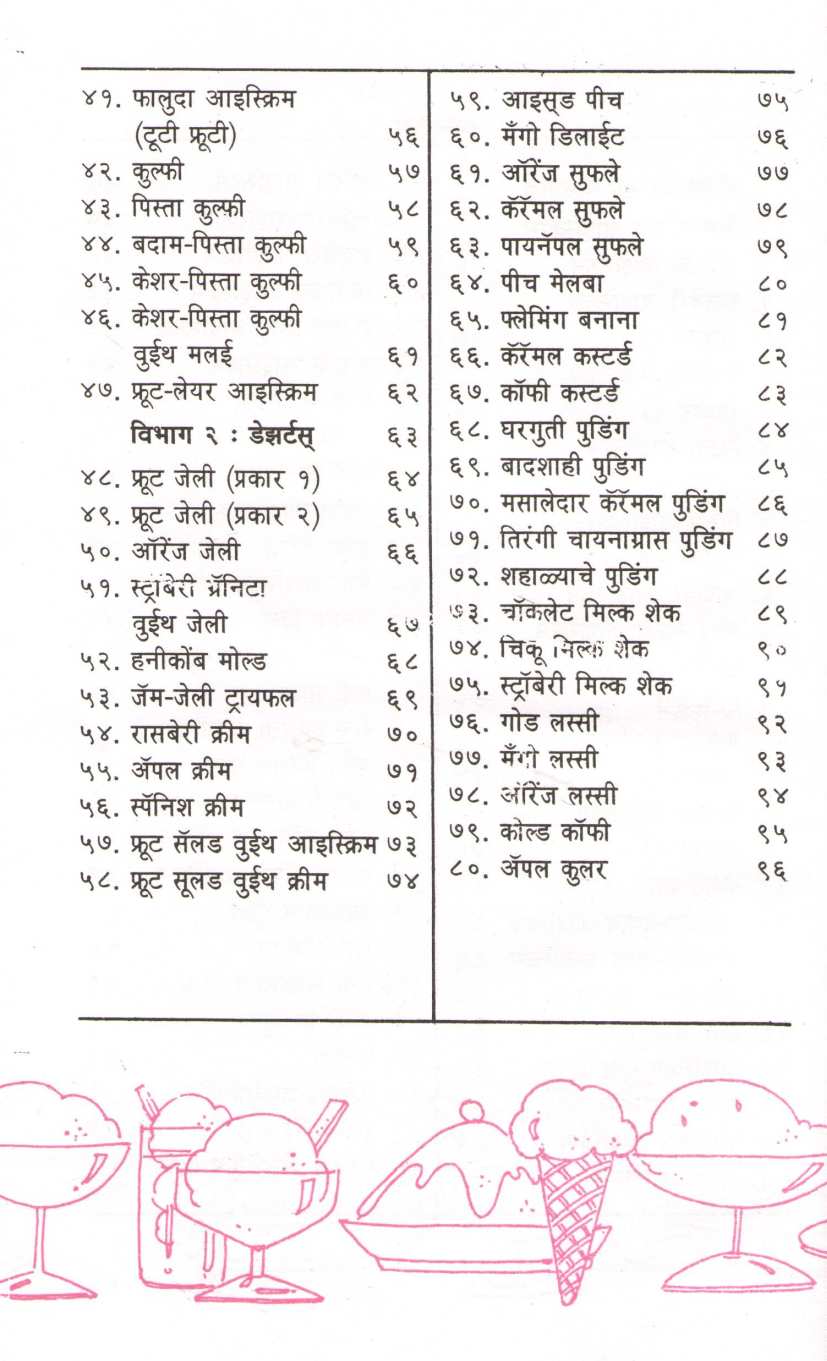 ४१. फालुदा आइस्क्रिम
(टूटी फ्रूटी) ५६
४२. कुल्फी ५७
४३. पिस्ता कुल्फी ५८
४४. बदाम-पिस्ता कुल्फी ५९
४५. केशर-पिस्ता कुल्फी ६०
४६. केशर-पिस्ता कुल्फी
वुईथ मलई ६१
४७. फ्रूट-लेयर आइस्क्रिम ६२
विभाग २ : डेझर्टस् ६३
४८. फ्रूट जेली (प्रकार १) ६४
४९. फ्रूट जेली (प्रकार २) ६५
५०. ऑरेंज जेली ६६
५१. स्ट्रॉबेरी ग्रॅनिटा
वुईथ जेली ६७
५२. हनीकोंब मोल्ड ६८
५३. जॅम-जेली ट्रायफल ६९
५४. रासबेरी क्रीम ७०
५५. ॲपल क्रीम ७१
५६. स्पॅनिश क्रीम ७२
५७. फ्रूट सॅलड वुईथ आइस्क्रिम ७३
५८. फ्रूट सूलड वुईथ क्रीम ७४
५९. आइस्ड पीच ७५
६०. मँगो डिलाईट ७६
६१. ऑरेंज सुफले ७७
६२. कॅरॅमल सुफले ७८
६३. पायनॅपल सुफले ७९
६४. पीच मेलबा ८०
६५. फ्लेमिंग बनाना ८१
६६. कॅरॅमल कस्टर्ड ८२
६७. कॉफी कस्टर्ड ८३
६८. घरगुती पुडिंग ८४
६९. बादशाही पुडिंग ८५
७०. मसालेदार कॅरॅमल पुडिंग ८६
७१. तिरंगी चायनाग्रास पुडिंग ८७
७२. शहाळ्याचे पुडिंग ८८
७३. चॉकलेट मिल्क शेक ८९
७४. चिकू मिल्क शेक ९०
७५. स्ट्रॉबेरी मिल्क शेक ९१
७६. गोड लस्सी ९२
७७. मँगो लस्सी ९३
७८. ऑरेंज लस्सी ९४
७९. कोल्ड कॉफी ९५
८०. ॲपल कुलर ९६